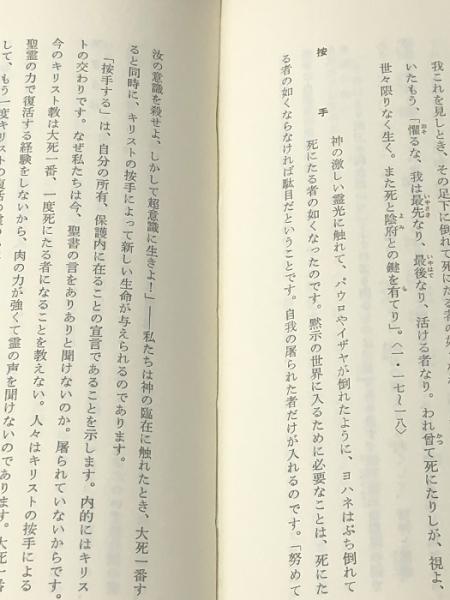 我これを見しとき、その足下に倒れて死にたる者の如くな
いたもう、「懼るな、我は最先なり、最後なり、活ける者なり。われ曾て死にたりしが、視よ、
世々限りなく生く。また死と陰府との鍵を有てり」。〈一・一七〜一八〉
按手
神の激しい霊光に触れて、パウロやイザヤが倒れたように、ヨハネはぶち倒れて
死にたる者の如くなったのです。黙示の世界に入るために必要なことは、死にた
る者の如くならなければ駄目だということです。自我の屠られた者だけが入れるのです。「努めて
汝の意識を殺せよ、しかして超意識に生きよ！」――私たちは神の臨在に触れたとき、大死一番す
ると同時に、キリストの按手によって新しい生命が与えられるのであります。
「按手する」は、自分の所有、保護内に在ることの宣言であることを示します。内的にはキリス
トの交わりです。なぜ私たちは今、聖書の言をありありと聞けないのか。屠られていないからです。
今のキリスト教は大死一番、一度死にたる者になることを教えない。人々はキリストの按手による
聖霊の力で復活する経験をしないから、肉の力が強くて霊の声を聞けないのであります。大死一番
して、もう一度キリストの復活の